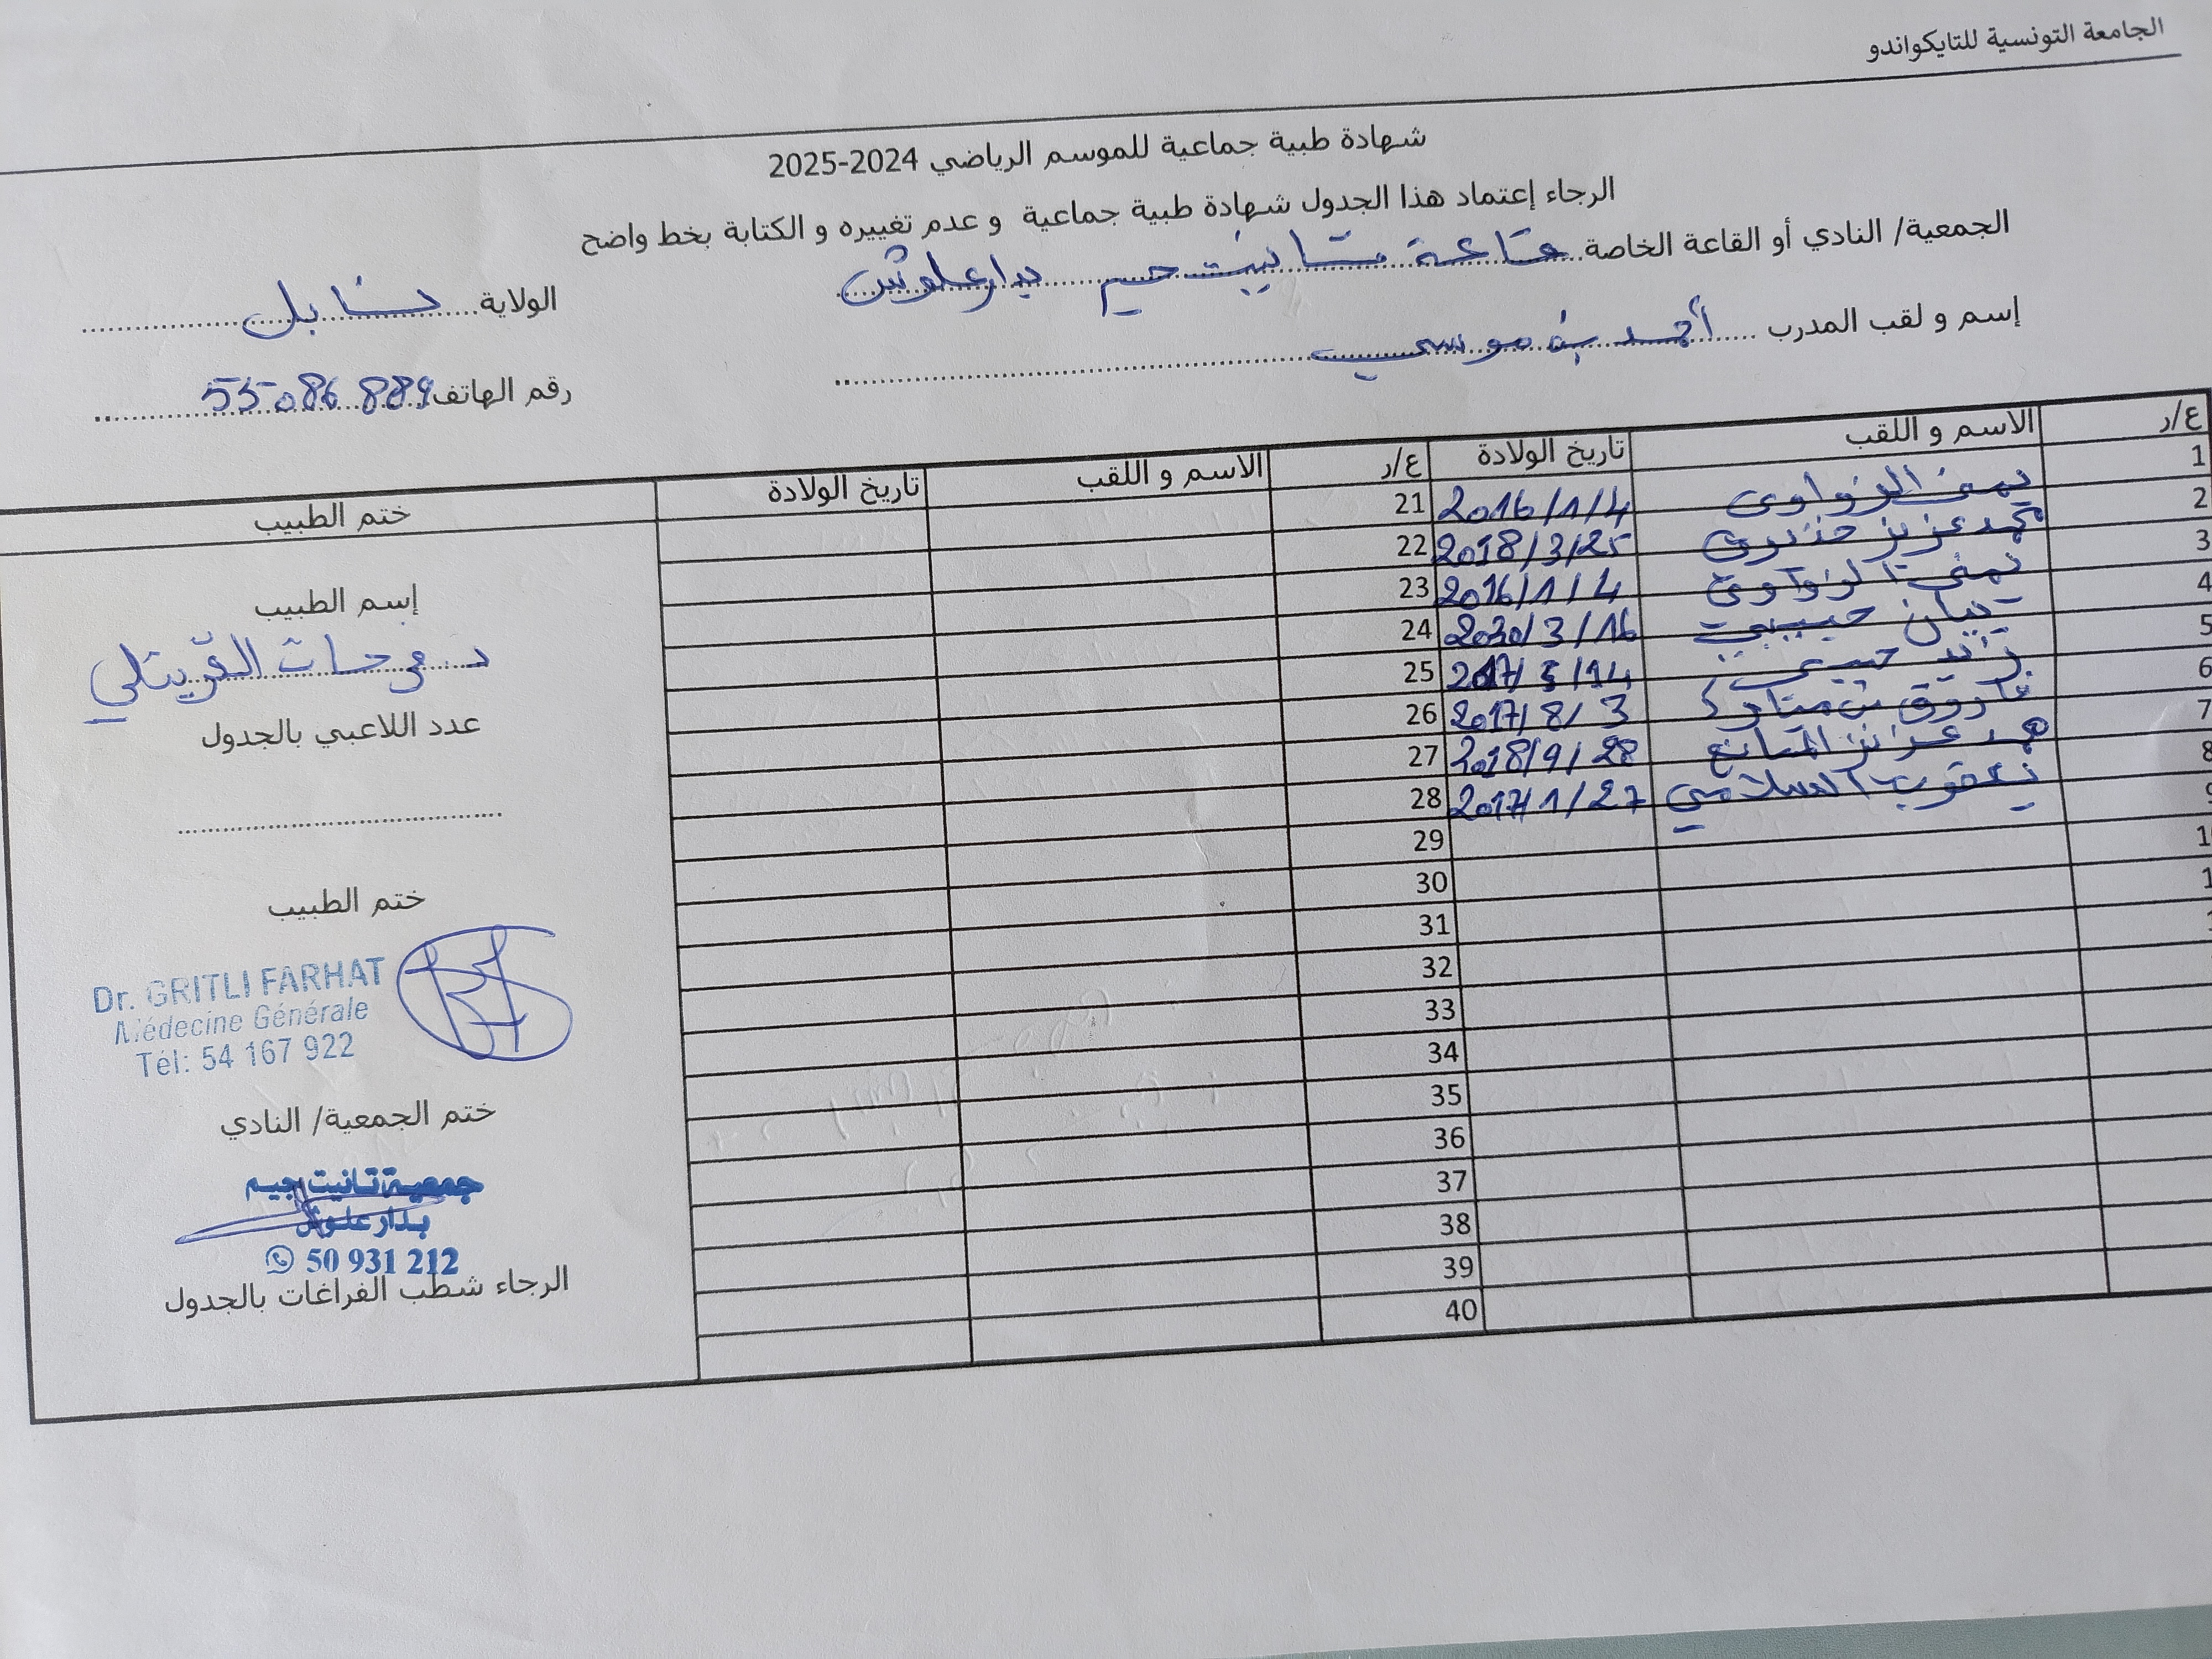 الجامعة التونسية للتايكواندو
شهادة طبية جماعية للموسم الرياضي 2024-2025
الرجاء إعتماد هذا الجدول شهادة طبية جماعية و عدم تغييره و الكتابة بخط واضح
الجمعية/ النادي أو القاعة الخاصة قاعة تانيت جيم بدار علوش
الولاية نابل
إسم و لقب المدرب أحمد بن موسى
رقم الهاتف 55086889
ع/ر الاسم و اللقب تاريخ الولادة ع/ر الاسم و اللقب تاريخ الولادة ختم الطبيب
1 يمنى الزواوي 2016/1/4 21
2 محمد عزيز 2018/3/25 22
3 يمنى الزواوي 2016/1/4 23
4 بيان حبيبي 3/16 24
5 زايد حبيبي 2017/5/14 25
6 فاروق بن 2017/8/3 26
7 عزيز المانع 2018/9/28 27
8 يعقوب السلامي 2017/1/27 28
29
30
31
32
33
34
35
36
37
38
39
40
إسم الطبيب
د. فرحات القريتلي
عدد اللاعبي بالجدول
ختم الطبيب
Dr. GRITLI FARHAT
Médecine Générale
Tél: 54 167 922
ختم الجمعية/ النادي
جمعية تانيت جيم
بدار علوش
50 931 212
الرجاء شطب الفراغات بالجدول